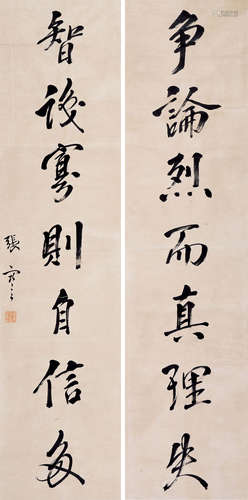 争論烈而真理失
智識寡則自信多
張